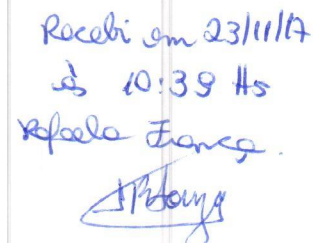 Recebi em 23/11/17
às 10:39 Hs
Rafaela França.